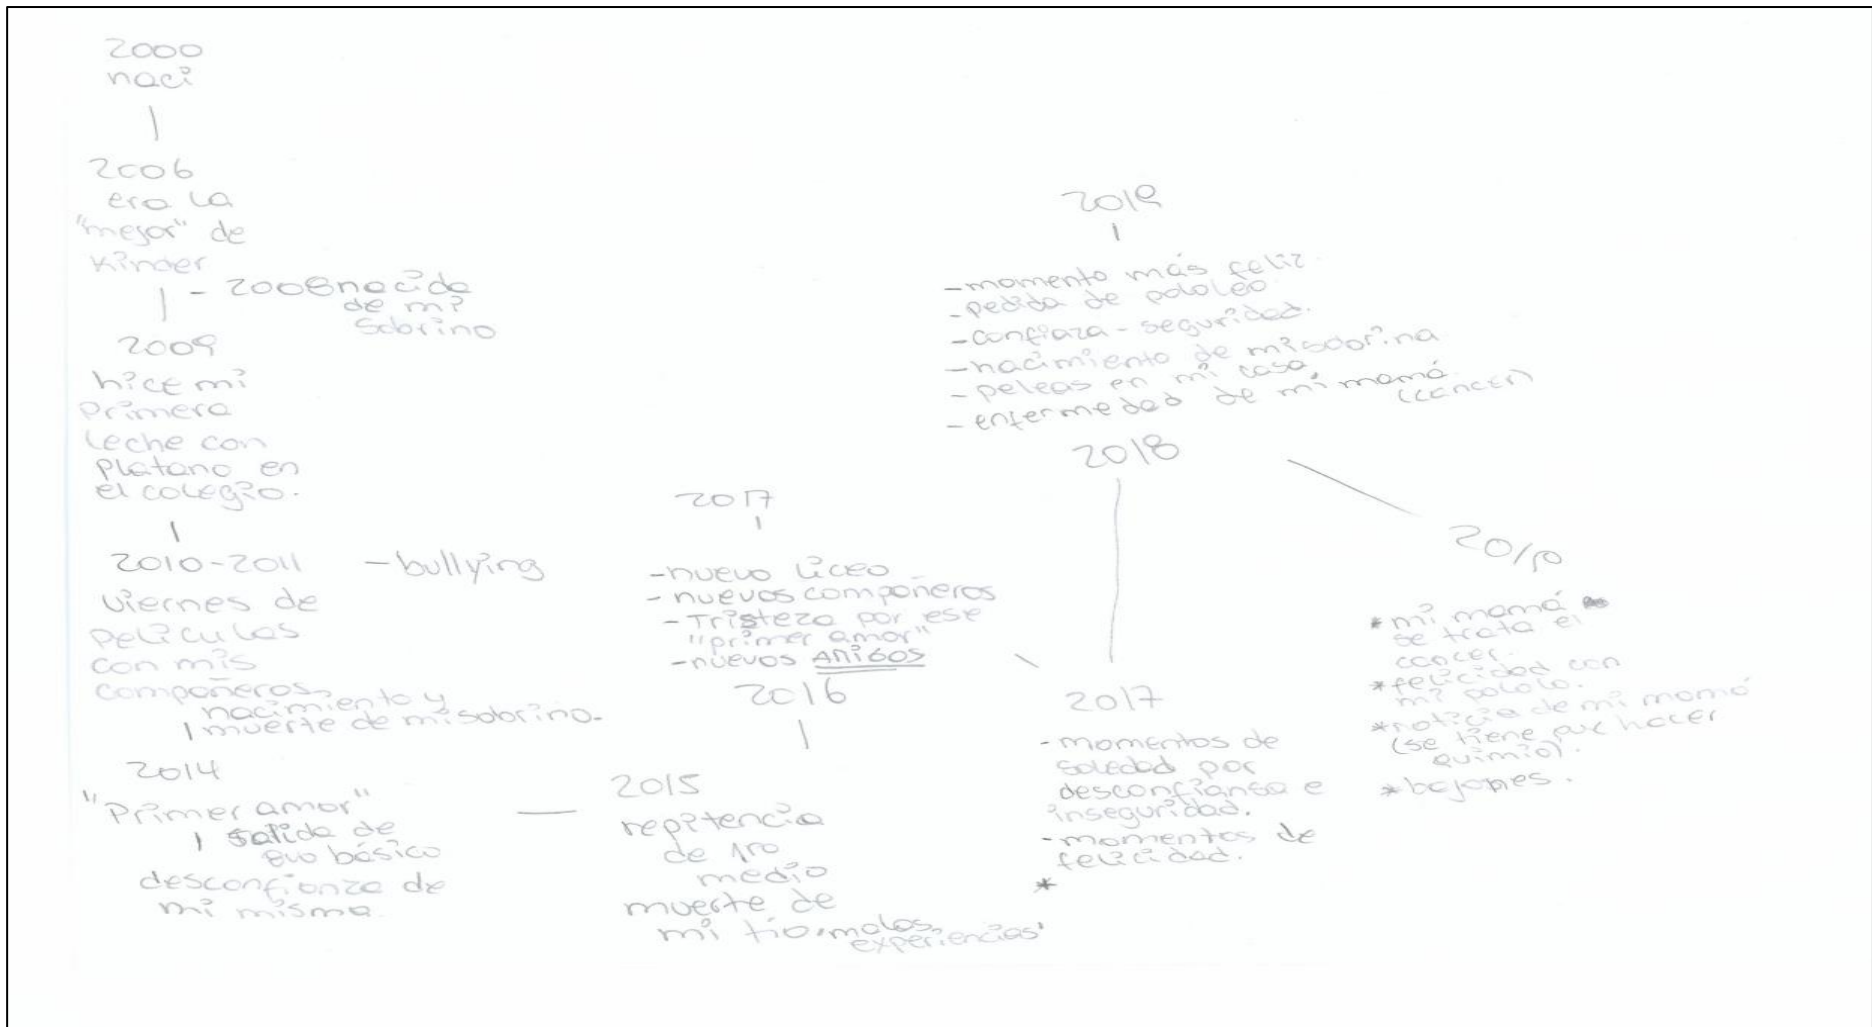 2000
naci
2006
era la
"mejor" de
Kinder
- 2008 nacida
de mi
sobrino
2009
hice mi
primera
leche con
platano en
el colegio.
2010-2011 - bullying
viernes de
peliculas
con mis
compañeros.
nacimiento y
muerte de mi sobrino.
2014
"Primer amor"
salida de
8vo básico
desconfianza de
mi misma.
2015
repitencia
de 1ro
medio
muerte de
mi tio. malas
experiencias
2017
- nuevo liceo
- nuevos compañeros
- Tristeza por ese
"primer amor"
- nuevos AMIGOS
2016
2017
- momentos de
soledad por
desconfiansa e
inseguridad.
- momentos de
felicidad.
*
2019
- momento más feliz.
- pedida de pololeo
- confiaza - seguridad.
- nacimiento de mi sobrina
- peleas en mi casa
- enfermedad de mi mamá
(cancer)
2018
* mi mamá
se trata el
cancer.
* felicidad con
mi pololo.
* noticia de mi mamá
(se tiene que hacer
quimio).
* bajones.